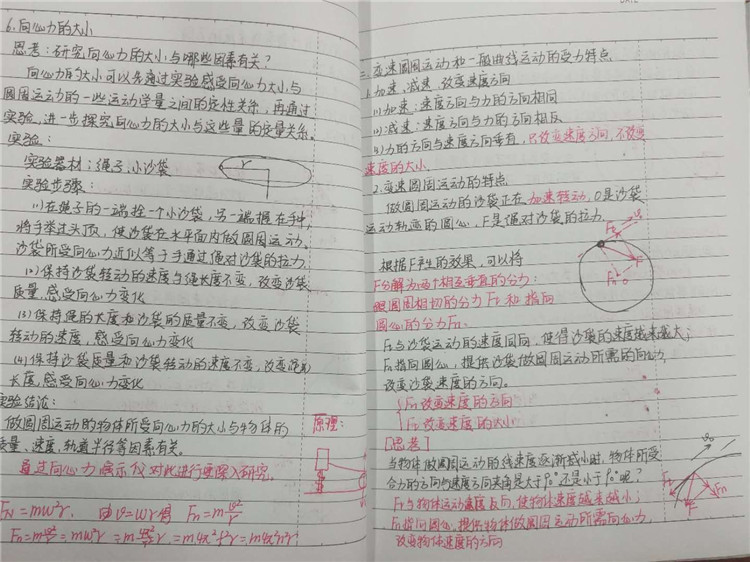 6.向心力的大小
思考:研究向心力的大小与哪些因素有关?
向心力的大小可以先通过实验感受向心力大小与
圆周运动的一些运动学量之间的定性关系,再通过
实验,进一步探究向心力的大小与这些量的定量关系。
实验:
实验器材:绳子、小沙袋
r
实验步骤:
(1)在绳子的一端拴一个小沙袋,另一端握在手中,
将手举过头顶,使沙袋在水平面内做圆周运动。
沙袋所受向心力近似等于手通过绳对沙袋的拉力
(2)保持沙袋转动的速度与绳长度不变,改变沙袋
质量,感受向心力变化
(3)保持绳的长度和沙袋的质量不变,改变沙袋
转动的速度,感受向心力变化
(4)保持沙袋质量和沙袋转动的速度不变,改变绳
长度,感受向心力变化
实验结论:
做圆周运动的物体所受向心力的大小与物体的
质量、速度、轨道半径等因素有关。
原理:
通过向心力演示仪对此进行更深入研究。
Fn=mω²r. 由v=ωr得 Fn=m v²/r
二.变速圆周运动和一般曲线运动的受力特点
1.加速、减速、改变速度方向
(1)加速:速度方向与力的方向相同
(2)减速:速度方向与力的方向相反
力的方向与速度方向垂直,只改变速度方向,不改变
速度的大小
2.变速圆周运动的特点
做圆周运动的沙袋正在加速转动,O是沙袋
运动轨迹的圆心,F是绳对沙袋的拉力.
根据F产生的效果,可以将
F分解为两个相互垂直的分力:
跟圆周相切的分力Ft和指向
圆心的分力Fn.
Ft与沙袋运动的速度同向,使得沙袋的速度越来越大;
Fn指向圆心,提供沙袋做圆周运动所需的向心力,
改变沙袋速度的方向。
Fn改变速度的方向
Ft改变速度的大小
[思考]
当物体做圆周运动的线速度逐渐减小时,物体所受
合力的方向与速度方向夹角是大于90°还是小于90°呢?
Ft与物体运动速度反向,使物体速度越来越小;
Fn指向圆心,提供物体做圆周运动所需向心力,
改变物体速度的方向